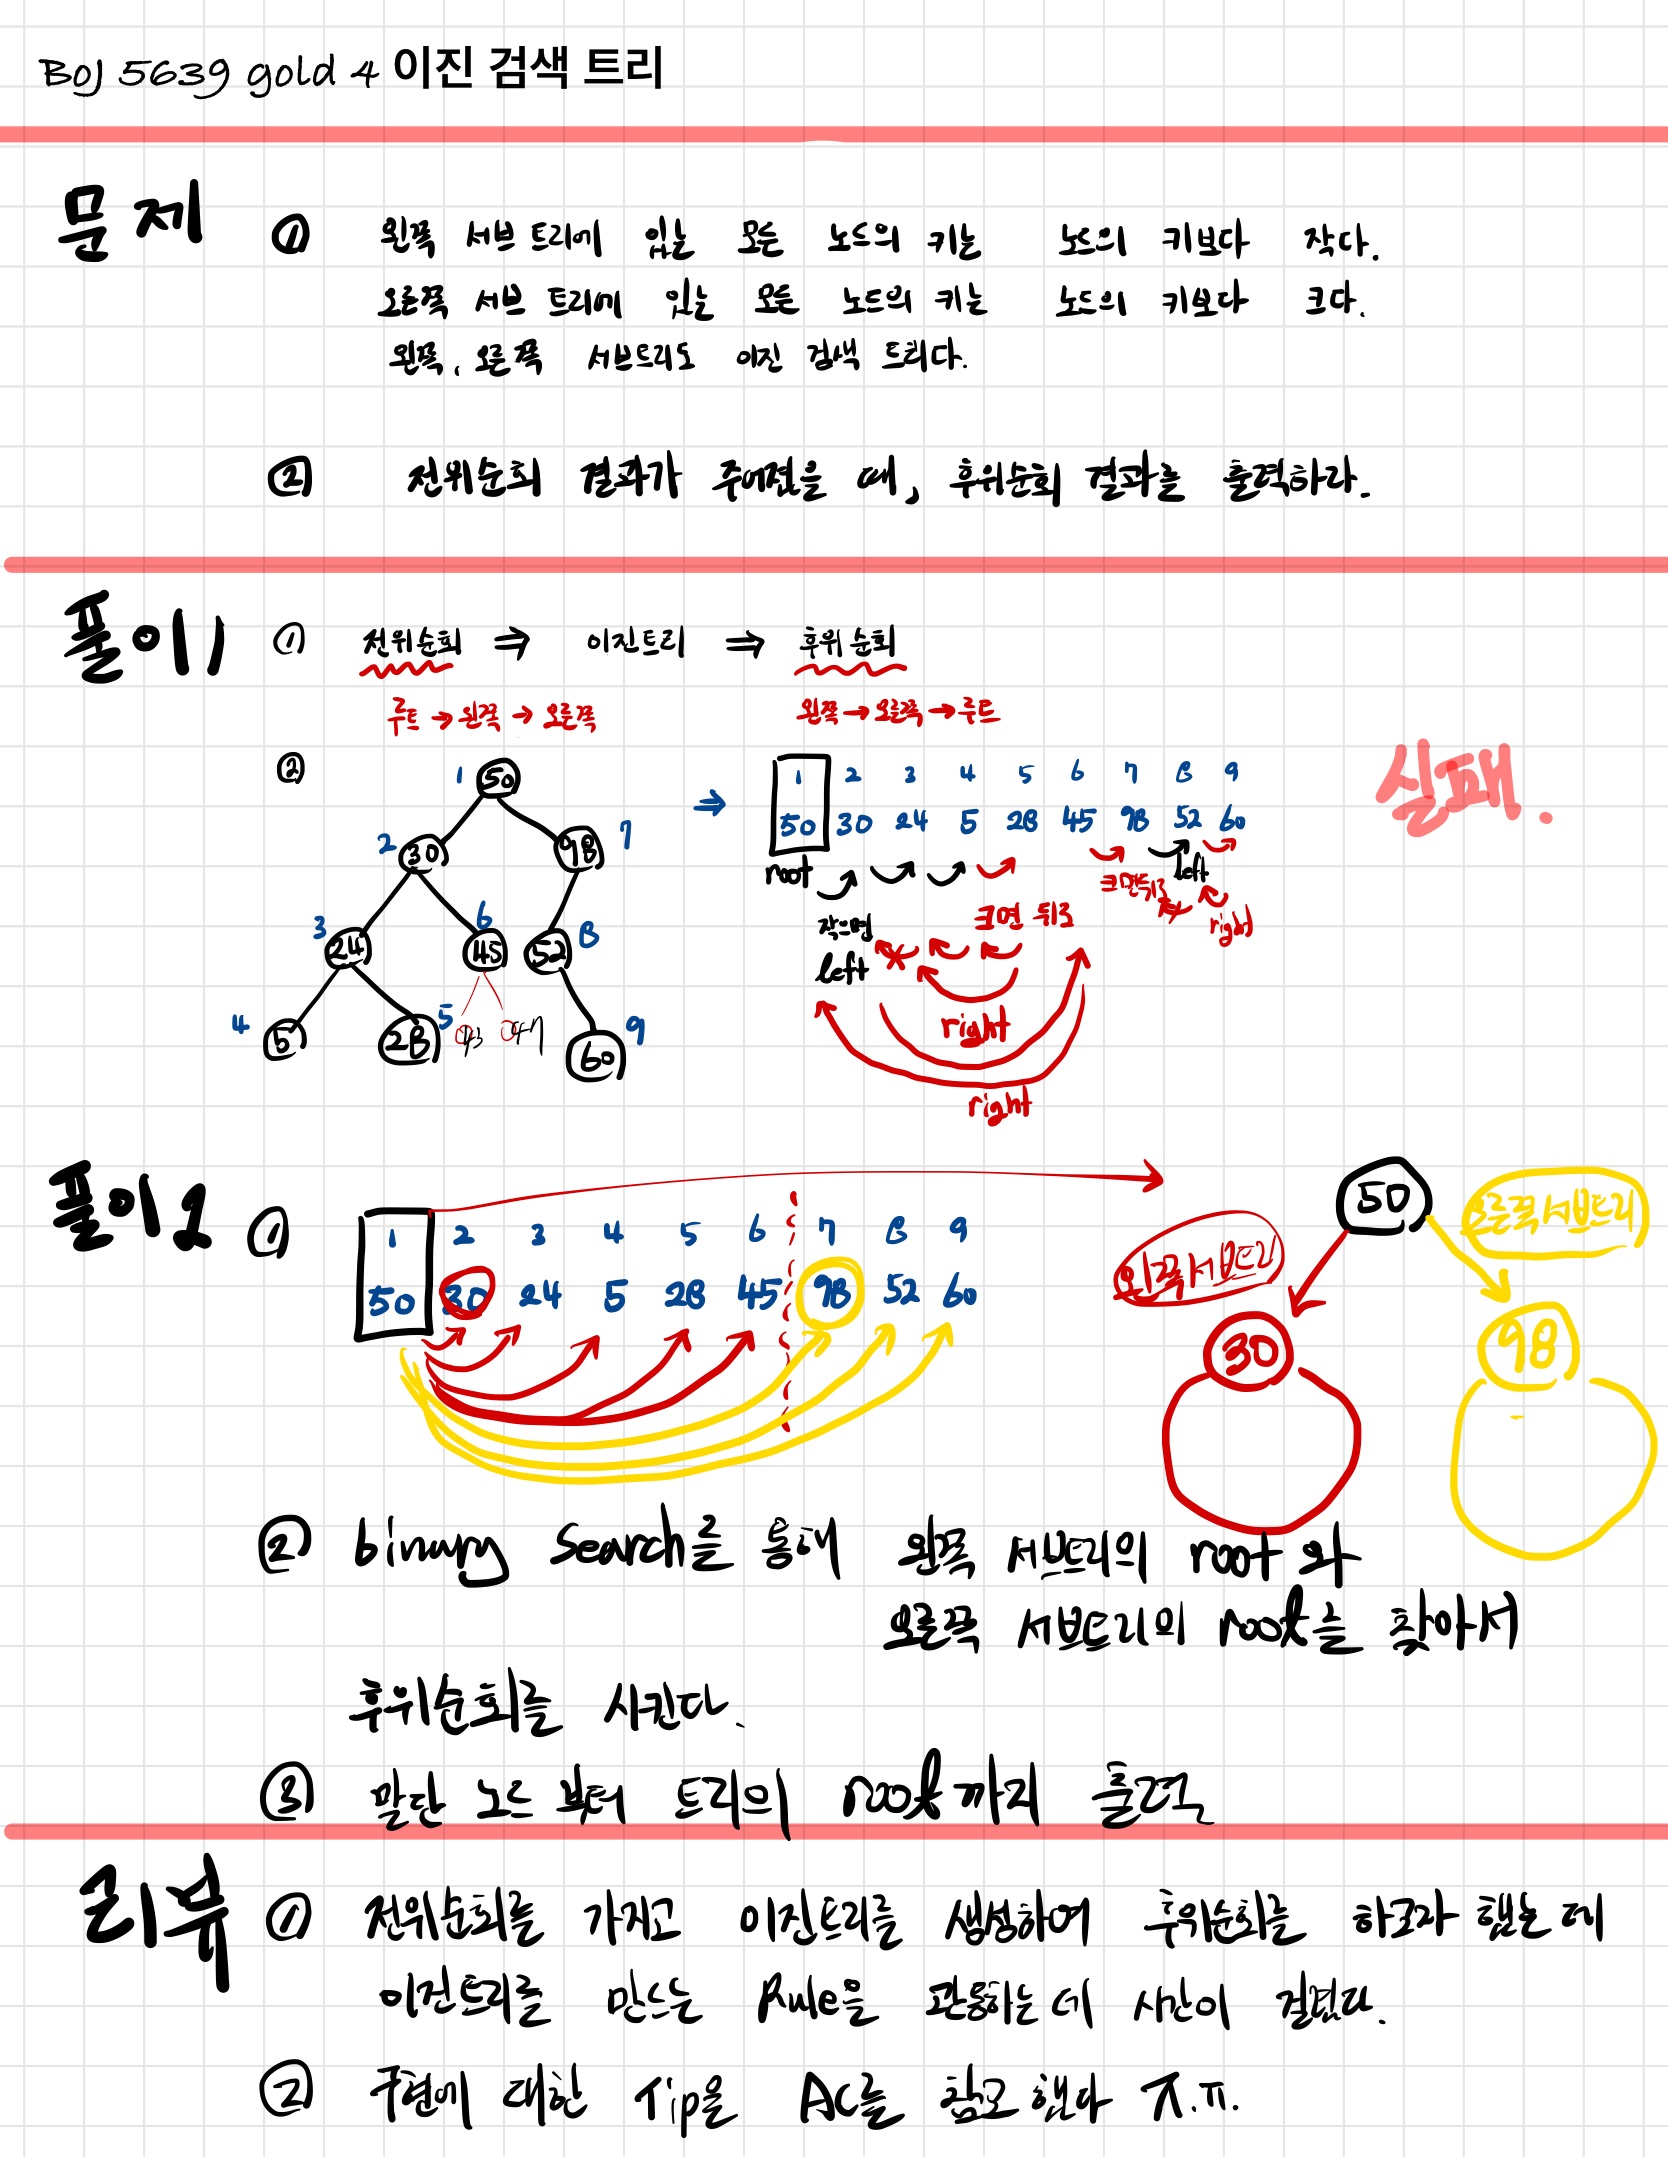 BOJ 5639 gold 4 이진 검색 트리
문제
① 왼쪽 서브 트리에 있는 모든 노드의 키는 노드의 키보다 작다.
오른쪽 서브 트리에 있는 모든 노드의 키는 노드의 키보다 크다.
왼쪽, 오른쪽 서브트리도 이진 검색 트리다.
② 전위순회 결과가 주어졌을 때, 후위순회 결과를 출력하라.
풀이1
① 전위순회 ⇒ 이진트리 ⇒ 후위순회
루트 → 왼쪽 → 오른쪽
왼쪽 → 오른쪽 → 루트
②
1 50
2 30 98 7
3 24 6 45 52 8
4 5 28 5 43 47 60 9
⇒
1 2 3 4 5 6 7 8 9
50 30 24 5 28 45 98 52 60
root
작으면
left
크면 뒤로
right
right
크면 뒤로
left
right
실패.
풀이2
①
1 2 3 4 5 6 7 8 9
50 30 24 5 28 45 98 52 60
50
왼쪽 서브트리
오른쪽 서브트리
30
98
② binary search를 통해 왼쪽 서브트리의 root와
오른쪽 서브트리의 root를 찾아서
후위순회를 시킨다.
③ 말단 노드 부터 트리의 root까지 출력
리뷰
① 전위순회를 가지고 이진트리를 생성하여 후위순회를 하고자 했는데
이진트리를 만드는 Rule을 적용하는데 시간이 걸렸다.
② 구현에 대한 Tip을 AC를 참고했다 ㅠ.ㅠ.